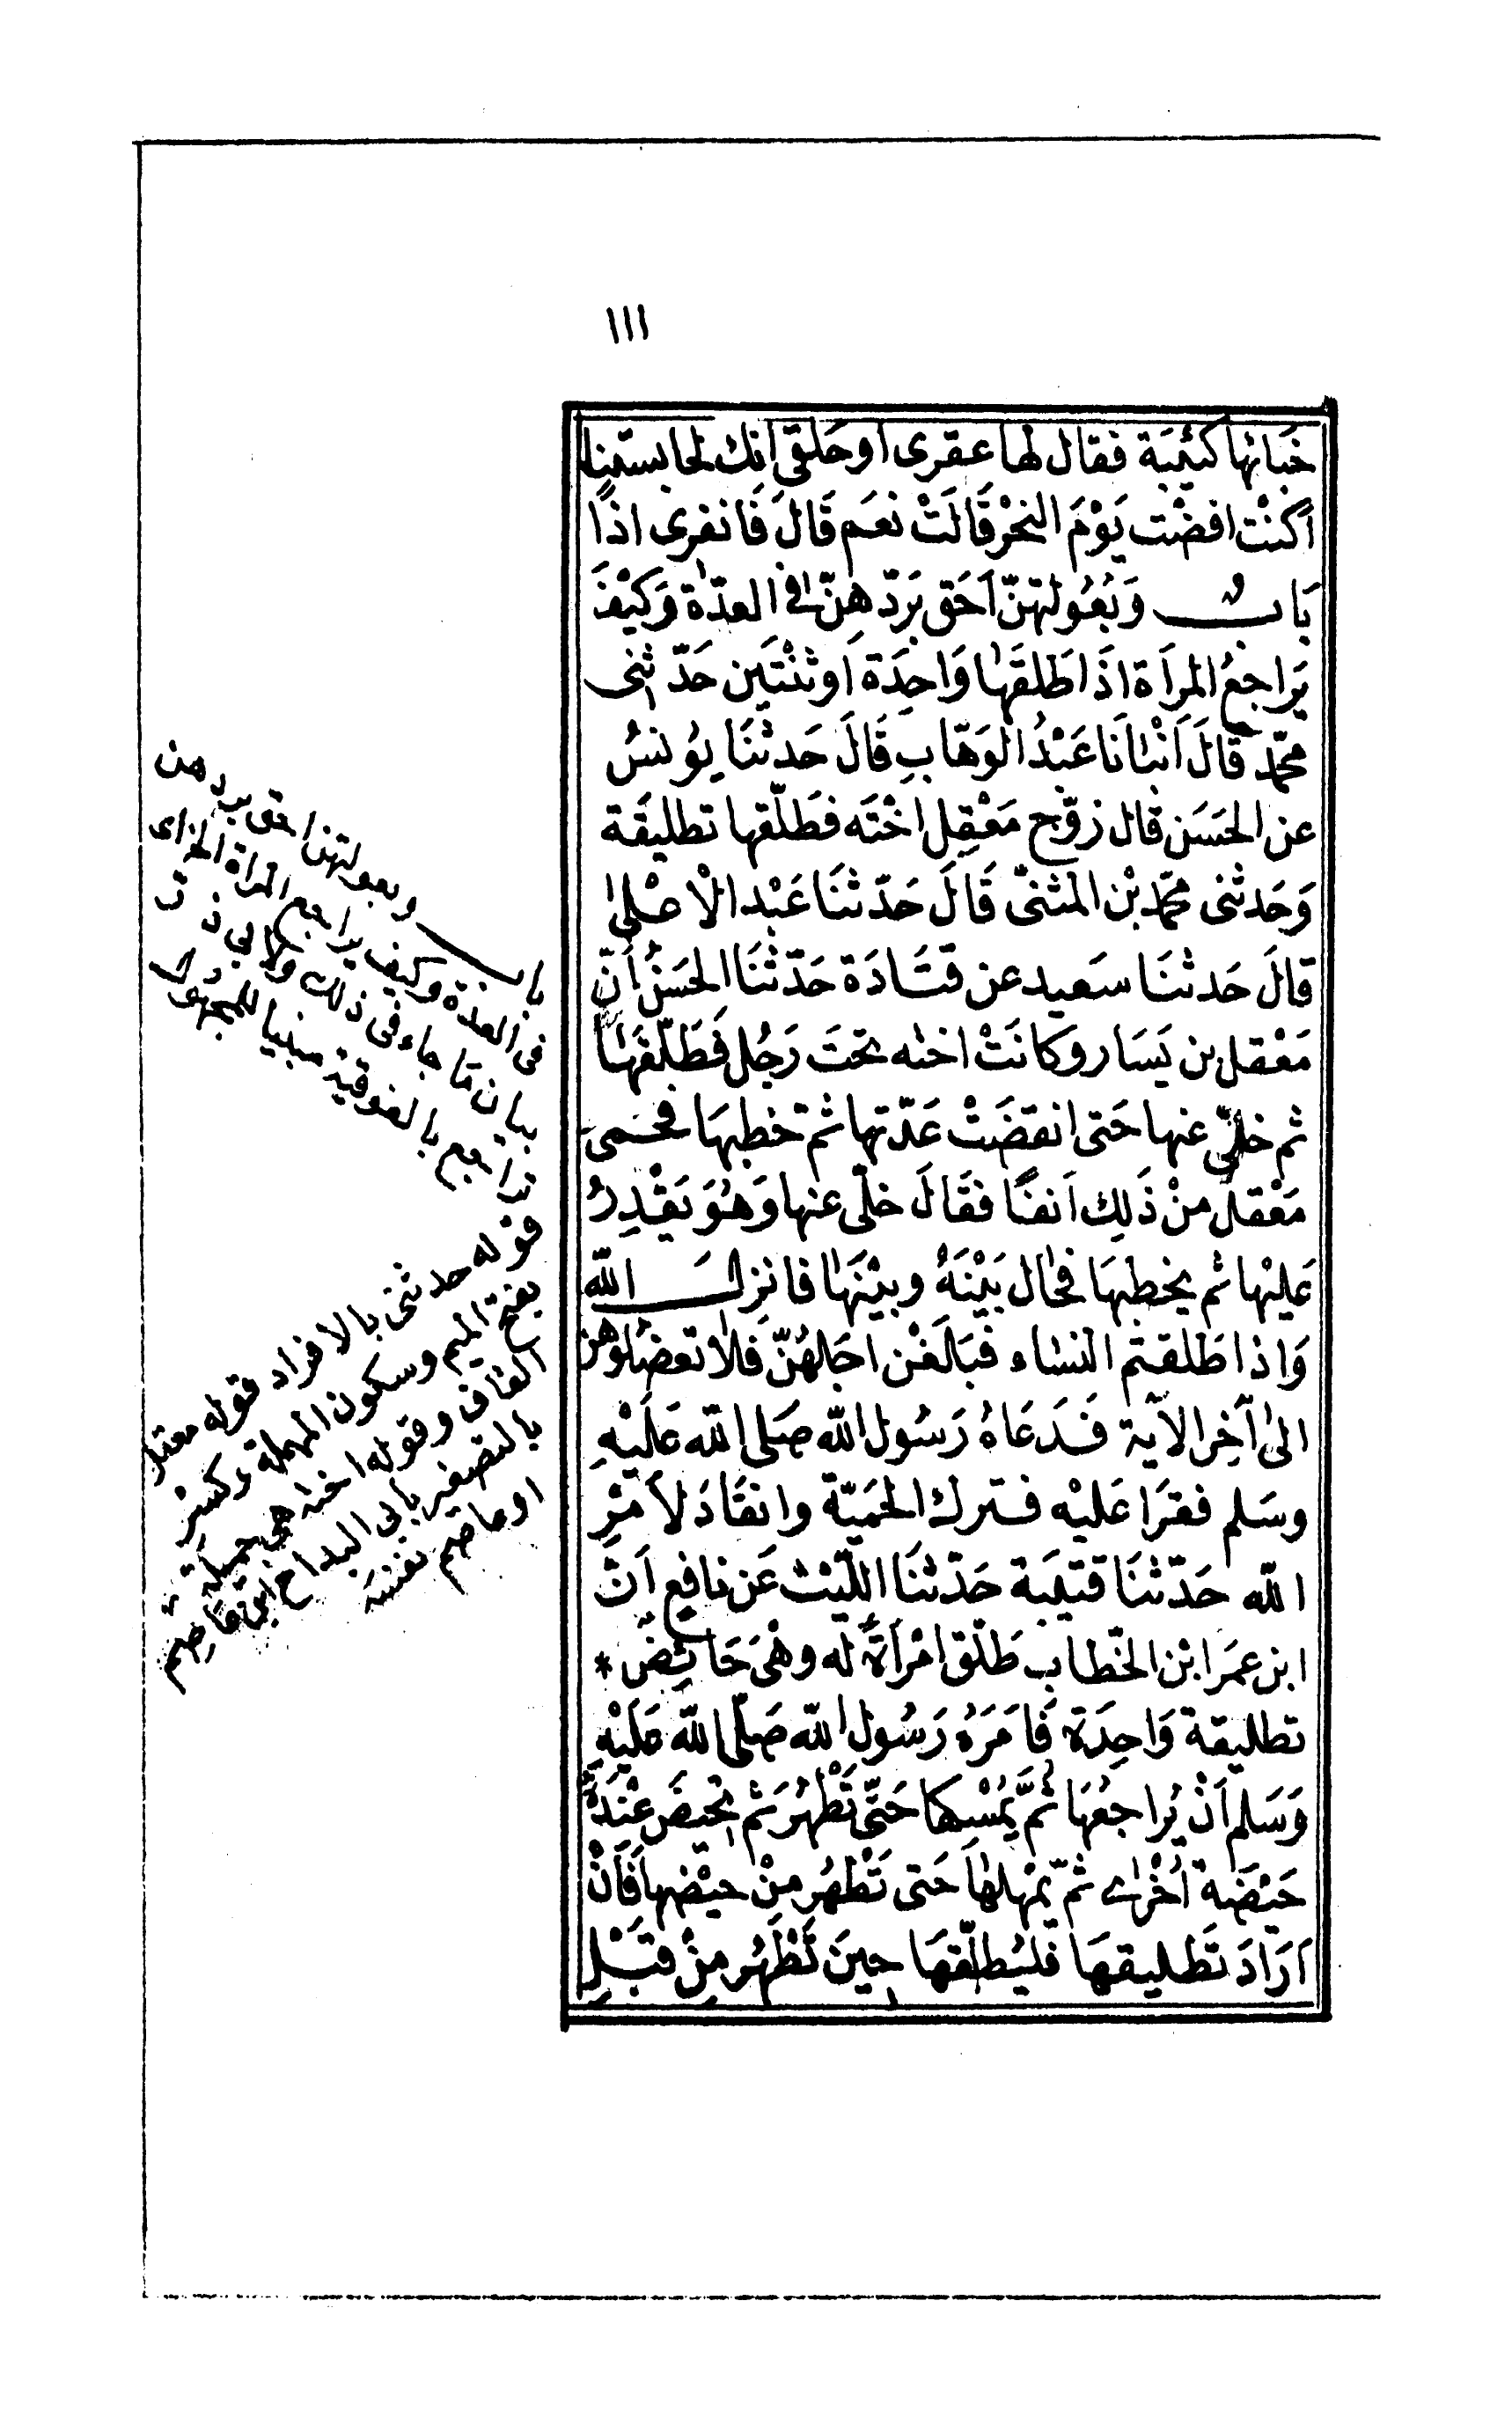 ١١١
خبائها كئيبة فقال لها عقرى او حلقى انك لحابستنا
أكنْت افضْت يَوْمَ النحْر قَالَتْ نعَم قَالَ فَانفرى اذًا
بَاب وَبُعُولتهنّ اَحَق بَردّهنّ فى العدّة وَكيْفَ
يَراجعُ المرأة اذَا طَلقَهَا وَاحِدَة اَو ثنْتَين حَدّثنى
محمّد قَالَ اَنْبأنَا عَبْدُ الوَهّابِ قَالَ حَدثنَا يوُنسُ
عن الحَسَن قال زوّج مَعْقِل اخْتَه فطَلّقها تطليقَة
وَحَدثنى محمّد بْن المثنىّ قَالَ حَدّثنَا عَبْد الْاعْلىٰ
قالَ حَدثنَا سَعيد عن قتَادَة حَدّثنَا الحَسَنُ اَنّ
مَعْقل بن يَسَار وكانَتْ اخته تحتَ رَجُل فَطَلّقهَا
ثم خلّى عنها حَتى انقضَتْ عَدّتها ثم خطبهَا فحَمىَ
مَعْقل منْ ذَلِك اَنفًا فقَالَ خلّى عنها وَهُوَ يَقْدِرُ
عَليْها ثم يخطبهَا فحَال بَيْنَهُ وبيْنَهَا فانزلَ اللّه
وَاذا طَلقتم النسَاء فبَلَغْن اجَلهُنّ فلَا تعضُلُوهن
الىٰ آخِر الاَية فَدَعَاهُ رَسُول اللّه صَلى اللّه عَلَيْهِ
وسَلم فقرَا عَليْه فترك الحَميّة وانقَادَ لاَمْرِ
اللّه حَدّثنَا قتيبَة حَدّثنَا اللّيْث عَن نافِع اَنّ
ابن عمَر ابْن الخّطاب طَلّق امْرَاَةً له وهْىَ حَائِضٌ *
تطليقة وَاحِدَة فَاَمَرَهُ رَسُول اللّه صَلّى اللّه عَليْهِ
وَسَلم اَنْ يُراجعُهَا ثُمَّ يُمْسِكها حَتّى تَطْهُرَ ثم تحَيضَ عنْدَهُ
حَيْضَة اُخْرَى ثمّ يمْهلهَا حَتى تَطْهُر منْ حيْضهاَ فَاَنْ
اَرَادَ تَطليقهَا فليُطلّقهَا حِينَ تَطْهُر مِنْ قَبْلِ
باب وبعولتهن احق بردهن
فى العدة وكيف يراجع المراة الخ اى
بيان ما جاء فى ذلك ولابى ذر
تراجع بالفوقية مبنيا للمجهول
قوله حدثنى بالافراد قوله معقل
بفتح الميم وسكون المهملة وكسْر
القاف وقوله اخته هى جميلة
بالتصغير بابى البداح ابن عاصم
او عاصم نفسه